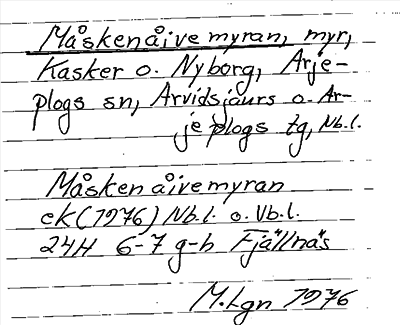 Måskenåive myran, myr,
Kasker o. Nyborg, Arje-
plogs sn, Arvidsjaurs o. Ar-
jeplogs tg, Nb.l.
Måskenåivemyran
ek (1976) Nb.l. o. Vb.l.
24H 6-7 g-h Fjällnäs
M.Lgn 1976